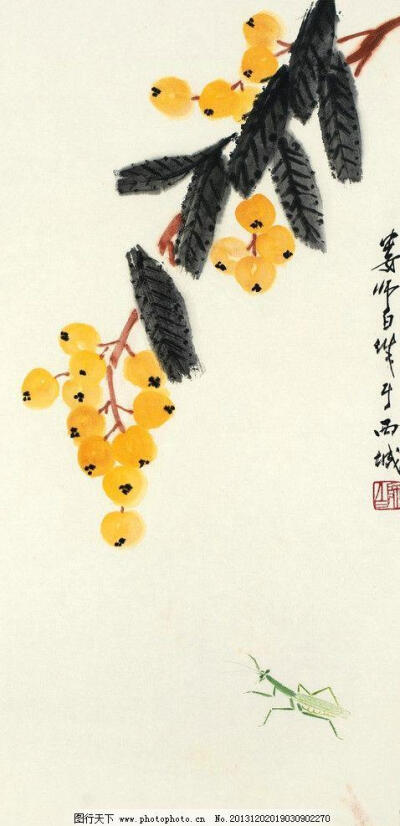 娄师白作于西城
图行天下 www.photophoto.cn No.20131202019030902270